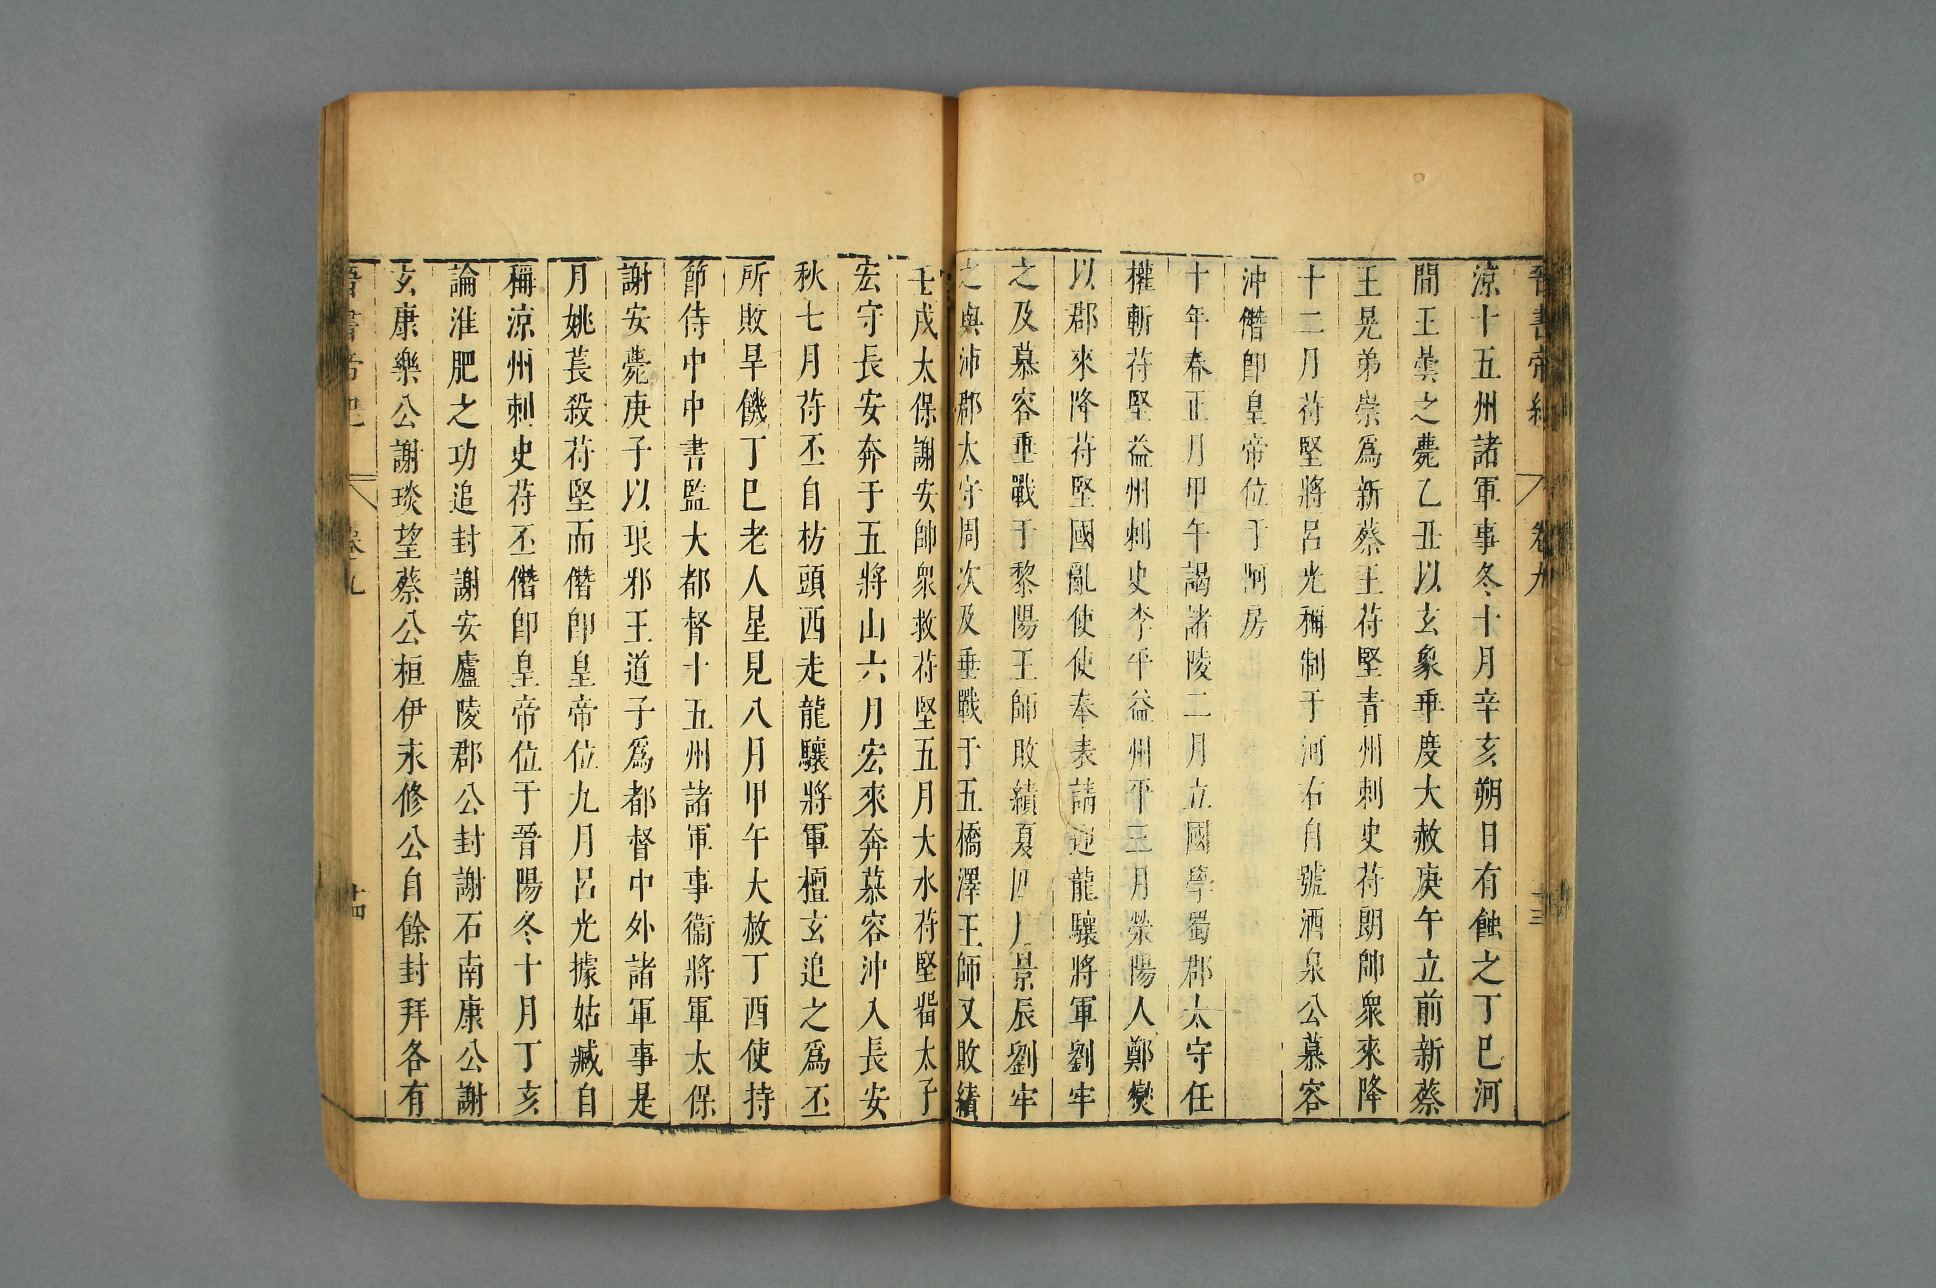 晉書帝紀 卷九 十三
涼十五州諸軍事冬十月辛亥朔日有蝕之丁巳河
間王曇之薨乙丑以玄象乖度大赦庚午立前新蔡
王晃弟崇爲新蔡王苻堅青州刺史苻朗帥衆來降
十二月苻堅將呂光稱制于河右自號酒泉公慕容
沖僭卽皇帝位于阿房
十年春正月甲午謁諸陵二月立國學蜀郡太守任
權斬苻堅益州刺史李平益州平三月滎陽人鄭燮
以郡來降苻堅國亂使使奉表請迎龍驤將軍劉牢
之及慕容垂戰于黎陽王師敗績夏四月景辰劉牢
之與沛郡太守周次及垂戰于五橋澤王師又敗績
壬戌太保謝安帥衆救苻堅五月大水苻堅畱太子
宏守長安奔于五將山六月宏來奔慕容沖入長安
秋七月苻丕自枋頭西走龍驤將軍檀玄追之爲丕
所敗旱饑丁巳老人星見八月甲午大赦丁酉使持
節侍中中書監大都督十五州諸軍事衞將軍太保
謝安薨庚子以琅邪王道子爲都督中外諸軍事是
月姚萇殺苻堅而僭卽皇帝位九月呂光據姑臧自
稱涼州刺史苻丕僭卽皇帝位于晉陽冬十月丁亥
論淮肥之功追封謝安廬陵郡公封謝石南康公謝
玄康樂公謝琰望蔡公桓伊永修公自餘封拜各有
晉書帝紀 卷九 十四